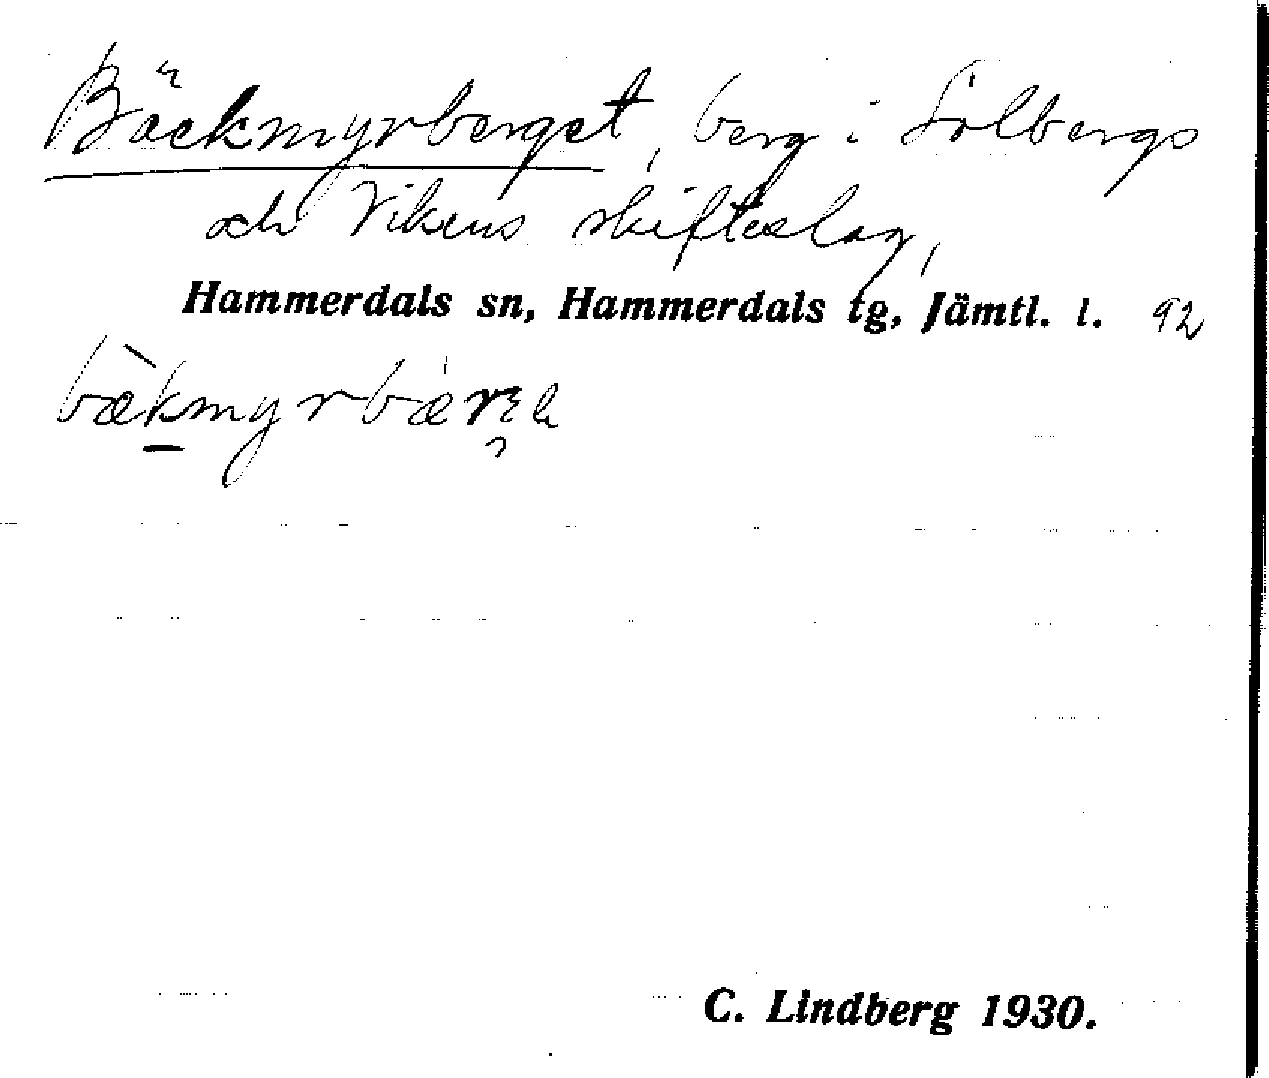 Bäckmyrberget, berg i Solbergs
och Vikens skifteslag,
Hammerdals sn, Hammerdals tg, Jämtl. l. 92
C. Lindberg 1930.